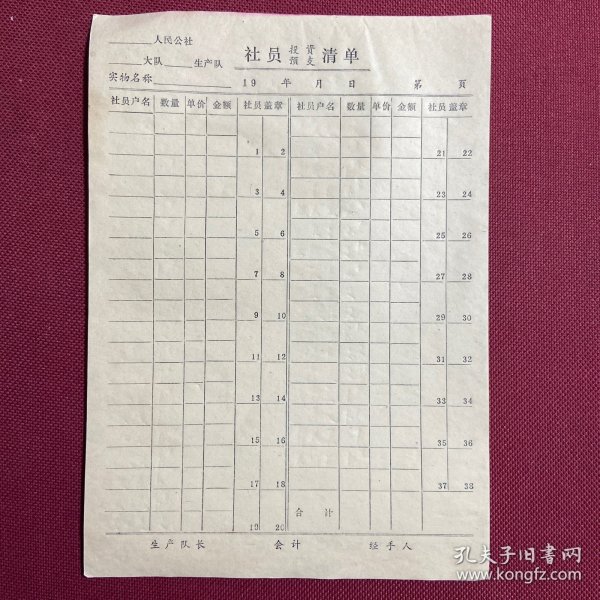 ______人民公社
______大队______生产队
社员 投资 预支 清单
实物名称______ 19 年 月 日 第 页
社员户名 数量 单价 金额 社员盖章 社员户名 数量 单价 金额 社员盖章
1 2 21 22
3 4 23 24
5 6 25 26
7 8 27 28
9 10 29 30
11 12 31 32
13 14 33 34
15 16 35 36
17 18 37 38
合计
19 20
生产队长 会计 经手人
孔夫子旧书网
www.kongfz.com